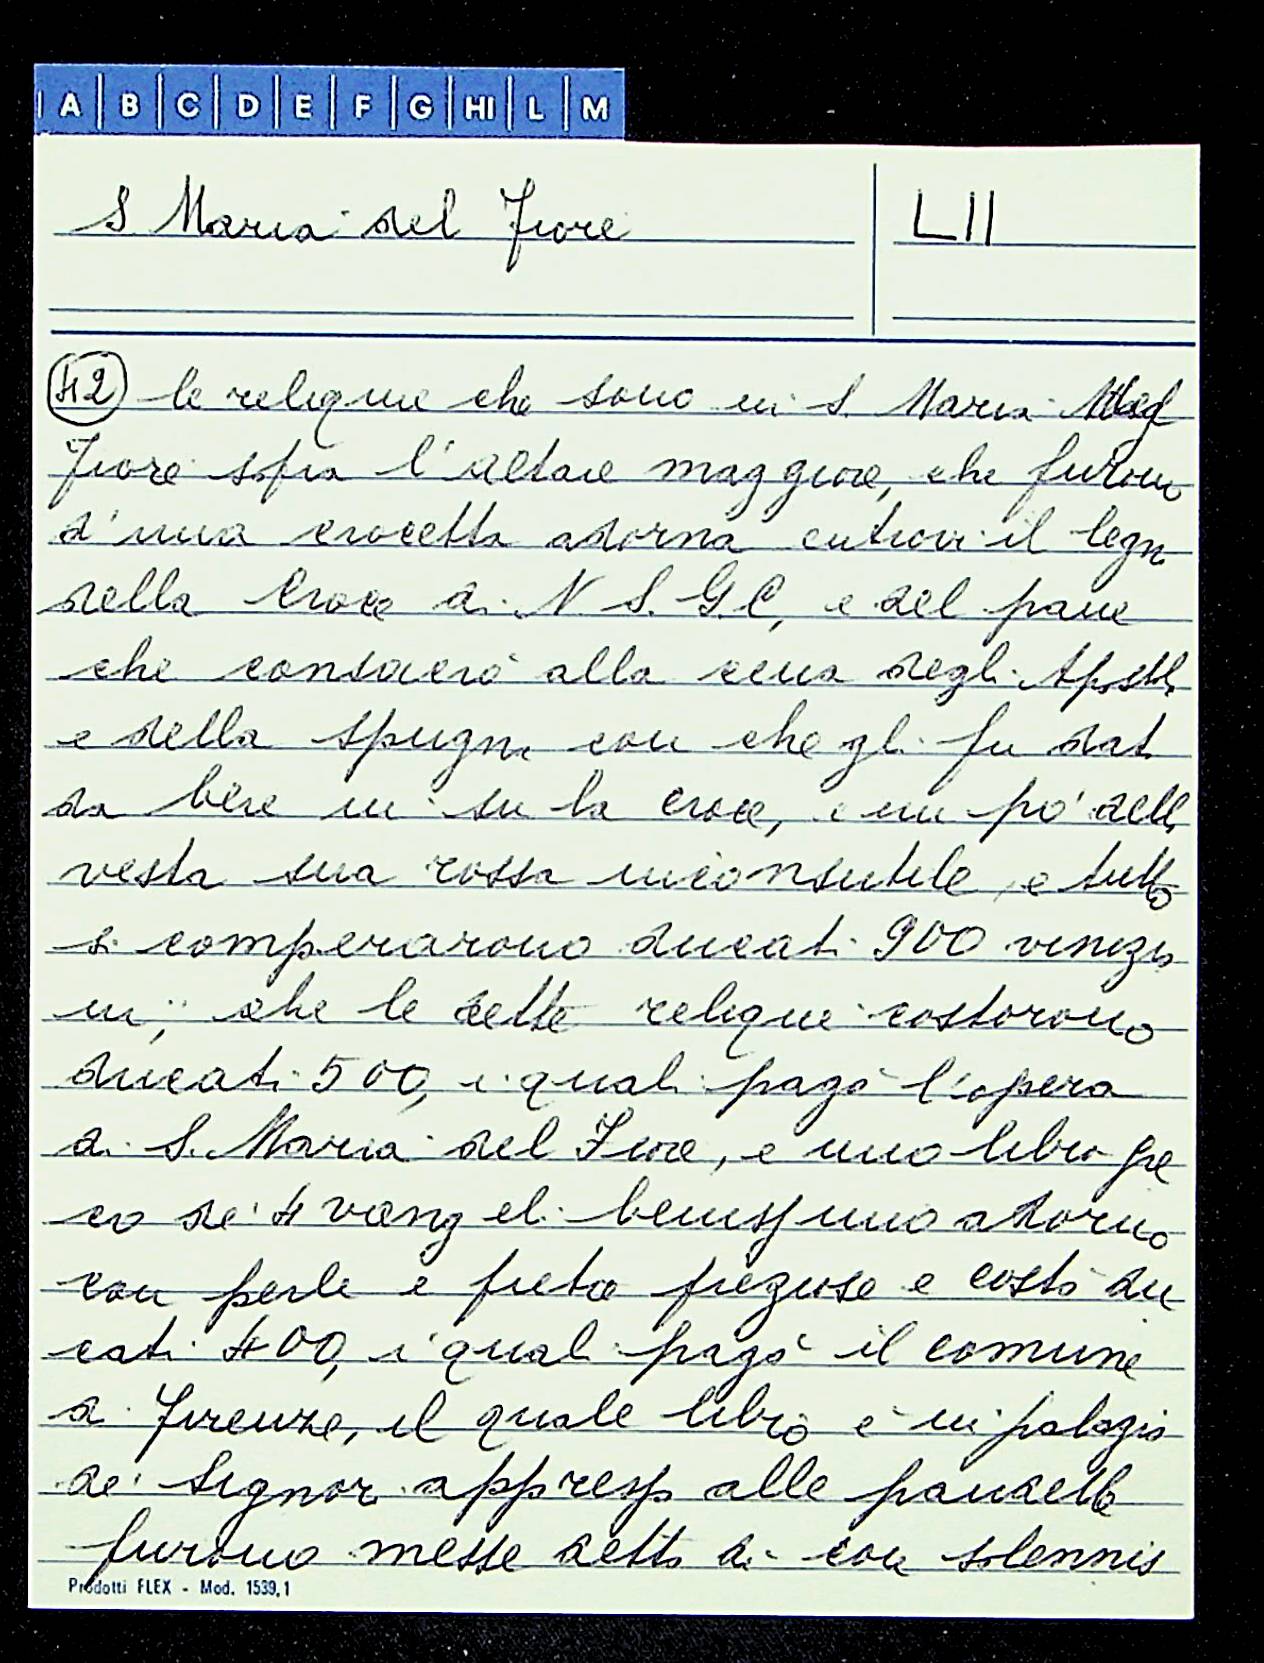 A B C D E F G HI L M
S. Maria del Fiore LII
42 le relique che sono in S. Maria del
Fiore sopra l'altare maggiore, che furono
d'una crocetta adorna entrovi il legno
della Croce di N. S. G. C, e del pane
che consacrò alla cena degli Apostoli
e della spugna con che gli fu dato
da bere in su la croce, e un po' della
vesta sua rossa inconsutile, e tutto
si comperarono ducati 900 venizia
ni; che le dette relique costorono
ducati 500, i quali pagò l'opera
di S. Maria del Fiore, e uno libro gre
co de' 4 vangeli benissimo adorno
con perle e pietre preziose e costò du
cati 400, i quali pagò il comune
di Firenze, il quale libro è in palazzo
de' Signori appresso alle pandette
furono messe detto dì con solennis
Prodotti FLEX - Mod. 1539,1